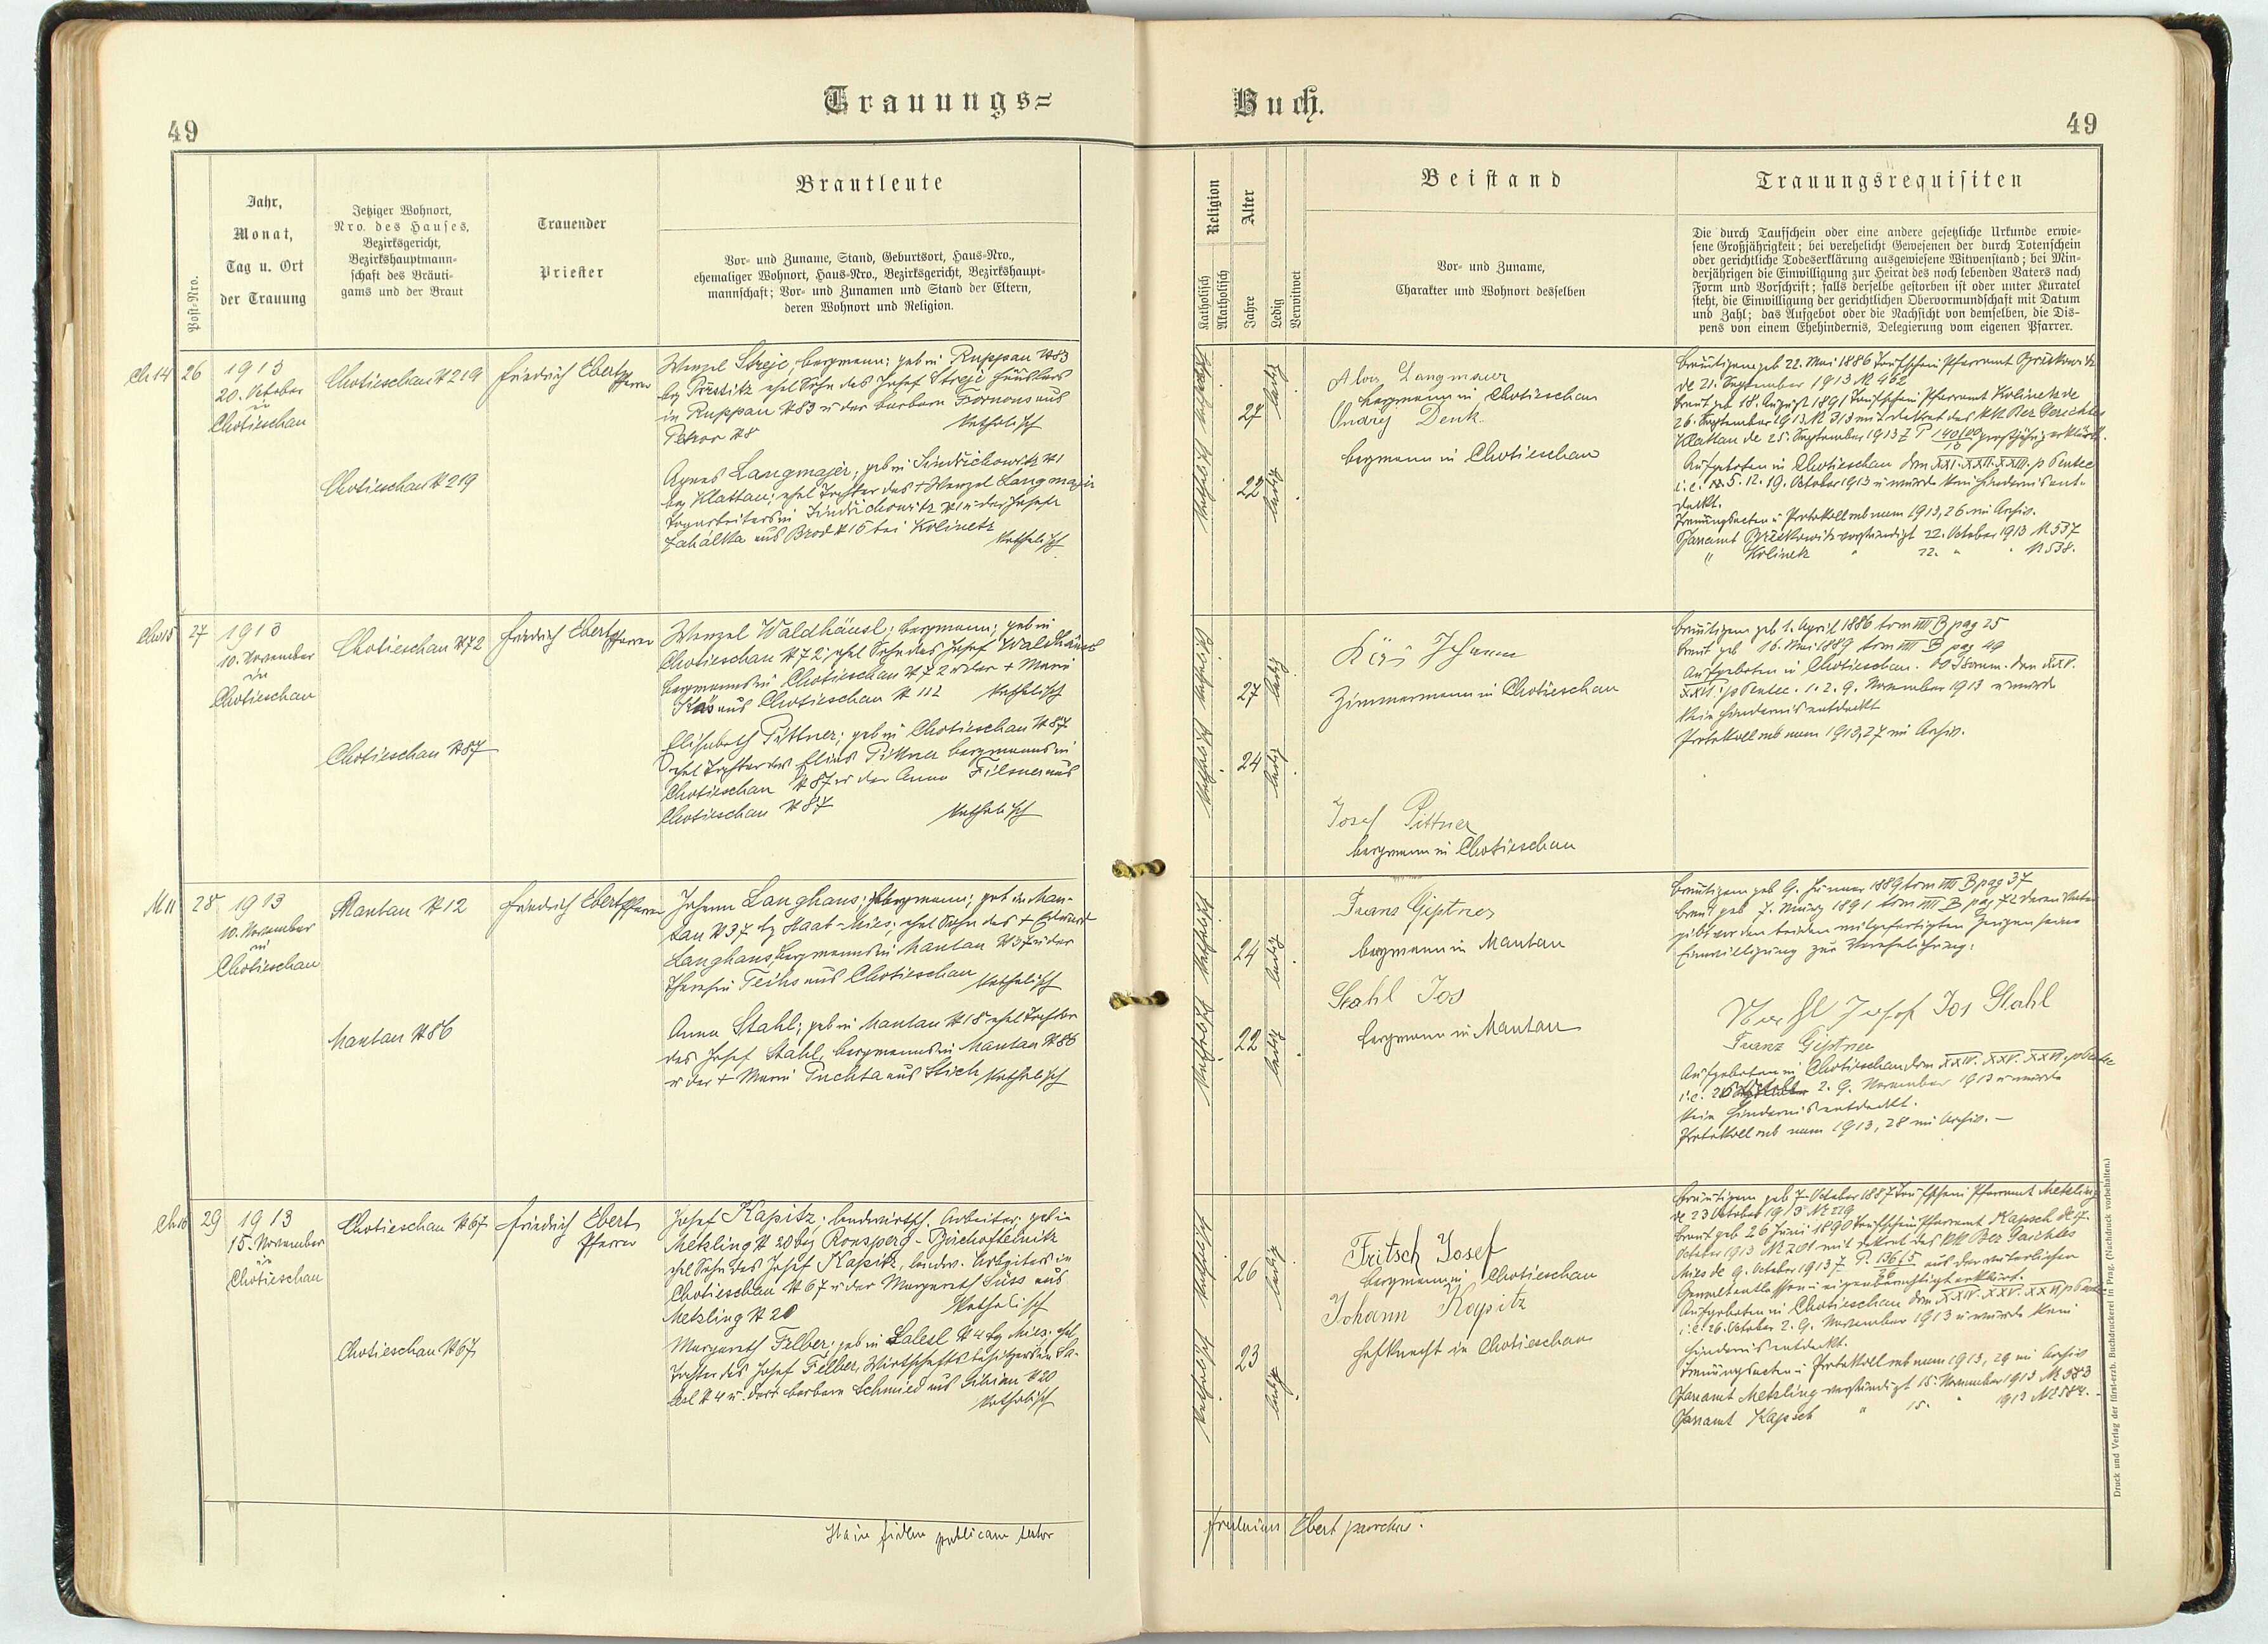 Trauungs=
Buch.
49
49
Post-Nro.
Jahr,
Monat,
Tag u. Ort
der Trauung
Jetziger Wohnort,
Nro. des Hauses,
Bezirksgericht,
Bezirkshauptmann-
schaft des Bräuti-
gams und der Braut
Trauender
Priester
Brautleute
Vor- und Zuname, Stand, Geburtsort, Haus-Nro.,
ehemaliger Wohnort, Haus-Nro., Bezirksgericht, Bezirkshaupt-
mannschaft; Vor- und Zunamen und Stand der Eltern,
deren Wohnort und Religion.
Religion
Katholisch
Akatholisch
Alter
Jahre
Ledig
Verwitwet
Beistand
Vor- und Zuname,
Charakter und Wohnort desselben
Trauungsrequisiten
Die durch Taufschein oder eine andere gesetzliche Urkunde erwie-
sene Großjährigkeit; bei verehelicht Gewesenen der durch Totenschein
oder gerichtliche Todeserklärung ausgewiesene Witwenstand; bei Min-
derjährigen die Einwilligung zur Heirat des noch lebenden Vaters nach
Form und Vorschrift; falls derselbe gestorben ist oder unter Kuratel
steht, die Einwilligung der gerichtlichen Obervormundschaft mit Datum
und Zahl; das Aufgebot oder die Nachsicht von demselben, die Dis-
pens von einem Ehehindernis, Delegierung vom eigenen Pfarrer.
Ch 14
26
1913
20. October
in
Chotieschau
Chotieschau N 219
Friedrich Ebert
Pfarrer
Wenzel Strejc, Bergmann; geb in Ruppau N 83
bez Prestitz ehel Sohn des Josef Strejc Häuslers
in Ruppau N 83 u der Barbara aus
N 8 katholisch
Chotieschau N 219
Agnes Langmajer, geb in N 1
bez Klattau; ehel Tochter des + Wenzel Langmajer
Tagarbeiters in N 1 u der Josefa
Zahálka aus Brod N 15 bei Kolinetz
katholisch
katholisch
27
ledig
katholisch
22
ledig
Alois Langmaier
Bergmann in Chotieschau
Ondrej Denk
Bergmann in Chotieschau
Bräutigam geb 22. Mai 1886 Taufschein Pfarramt
de 21. September 1913 N 462
Braut geb 18. August 1891 Taufschein Pfarramt Kolinetz de
26. September 1913 N 313 mit Dekret des kk Bez Gerichtes
Klattau de 25. September 1913 großjährig erklärt.
Aufgeboten in Chotieschau dom XXI. XXII. XXIII. p Pentec
i.e. 5. 12. 19. October 1913 u wurde kein Hindernis ent-
deckt.
Trauungsacten u Protokoll sub num 1913, 26 im Archiv.
Pfarramt verständigt 22. October 1913 N 537
" Kolinetz " 22. " " N 538.
Cho 15
27
1913
10. November
in
Chotieschau
Chotieschau N 72
Friedrich Ebert
Pfarrer
Wenzel Waldhäusl; Bergmann; geb in
Chotieschau N 72; ehel Sohn des Josef Waldhäusl
Bergmanns in Chotieschau N 72 u der + Maria
aus Chotieschau N 112 katholisch
Chotieschau N 87
Elisabeth Pittner; geb in Chotieschau N 87
ehel Tochter des Elias Pittner Bergmanns in
Chotieschau N 87 u der Anna aus
Chotieschau N 87 katholisch
katholisch
27
ledig
katholisch
24
ledig
Johann
Zimmermann in Chotieschau
Josef Pittner
Bergmann in Chotieschau
Bräutigam geb 1. April 1886 tom VIII B pag 25
Braut geb 16. Mai 1889 tom VIII B pag 49
Aufgeboten in Chotieschau. dom XXV.
XXVI. p Pentec. 1. 2. 9. November 1913 u wurde
kein Hindernis entdeckt
Protokoll sub num 1913, 27 im Archiv.
M 11
28
1913
10. November
in
Chotieschau
Mantau N 12
Friedrich Ebert
Pfarrer
Johann Langhans; Bergmann; geb in Man-
tau N 37 bz Staab-Mies; ehel Sohn des + Eduard
Langhans, Bergmanns in Mantau N 37 u der
Theresia aus Chotieschau katholisch
Mantau N 86
Anna Stahl; geb in Mantau N 18 ehel Tochter
des Josef Stahl, Bergmanns in Mantau N 86
u der + Maria Puchta aus Stich katholisch
katholisch
24
ledig
katholisch
22
ledig
Franz Gipfner
Bergmann in Mantau
Stahl Jos
Bergmann in Mantau
Bräutigam geb 9. Jänner 1889 tom VIII B pag 37
Braut geb 7. März 1891 tom VIII B pag 72 deren Vater
gibt vor den beiden mitgefertigten Zeugen seine
Einwilligung zur Verehelichung:
Josef Jos Stahl
Franz Gipfner
Aufgeboten in Chotieschau dom XXIV. XXV. XXVI. p Pentec
i.e. 26 October 2. 9. November 1913 u wurde
kein Hindernis entdeckt.
Protokoll sub num 1913, 28 im Archiv. —
Ch 16
29
1913
15. November
in
Chotieschau
Chotieschau N 67
Friedrich Ebert
Pfarrer
Josef Kapitz; landwirtsch. Arbeiter; geb in
Metzling N 20 bez Ronsperg - Bischofteinitz
ehel Sohn des Josef Kapitz, landw. Arbeiters in
Chotieschau N 67 u der Margareth Süss aus
Metzling N 20 katholisch
Chotieschau N 67
Margareth Felber; geb in Salesl N 4 bz Mies; ehel
Tochter des Josef Felber, Wirtschaftsbesitzers in Sa-
lesl N 4 u. dess Barbara Schmied aus N 20
katholisch
katholisch
26
ledig
katholisch
23
ledig
Fritsch Josef
Bergmann in Chotieschau
Johann Kapitz
Hofknecht in Chotieschau
Bräutigam geb 7 October 1887 Taufschein Pfarramt Metzling
de 23 October 1913 N 229
Braut geb 26 Juni 1890 Taufschein Pfarramt Kapsch de 17.
October 1913 N 201 mit Dekret des kk Bez Gerichtes
Mies de 9. October 1913 aus der väterlichen
Gewalt entlassen u eigenberechtigt erklärt.
Aufgeboten in Chotieschau dom XXIV. XXV. XXVI p Pentec
i.e. 26. October 2. 9. November 1913 u wurde kein
Hindernis entdeckt.
Trauungsacten u Protokoll sub num 1913, 29 im Archiv
Pfarramt Metzling verständigt 15. November 1913 N 583
Pfarramt Kapsch " 15. " 1913 N 584.
Ita in fidem publicam testor
Fridericus Ebert parochus.
Druck und Verlag der fürst-erzb. Buchdruckerei in Prag. (Nachdruck vorbehalten.)